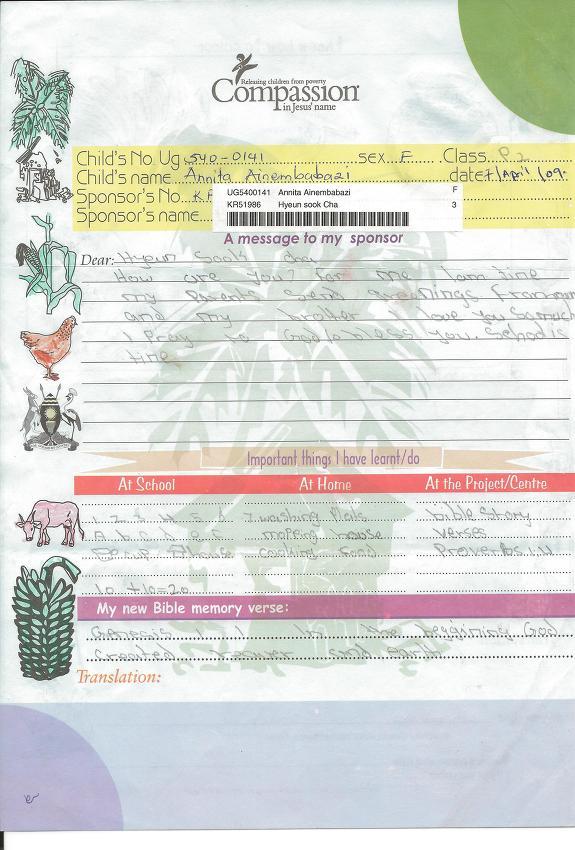 Releasing children from poverty
Compassion
in Jesus' name
Child's No. Ug 540-0141 sex F Class P.2
Child's name Annita Ainembabazi date 7/April/09
Sponsor's No. KR
UG5400141 Annita Ainembabazi F
Sponsor's name
KR51986 Hyeun sook Cha 3
A message to my sponsor
Dear: Hyeun Sook cha
How are you? for me I am fine
my parents send greetings from
and my brother I love you so much
I pray to God to bless you. School is
fine
Important things I have learnt/do
At School At Home At the Project/Centre
washing Plate bible Story
mopping house verses
cooking food Proverbs 1:4
10 + 10 = 20
My new Bible memory verse:
Genesis 1 1 In the beginning God
Created heaven and earth
Translation: